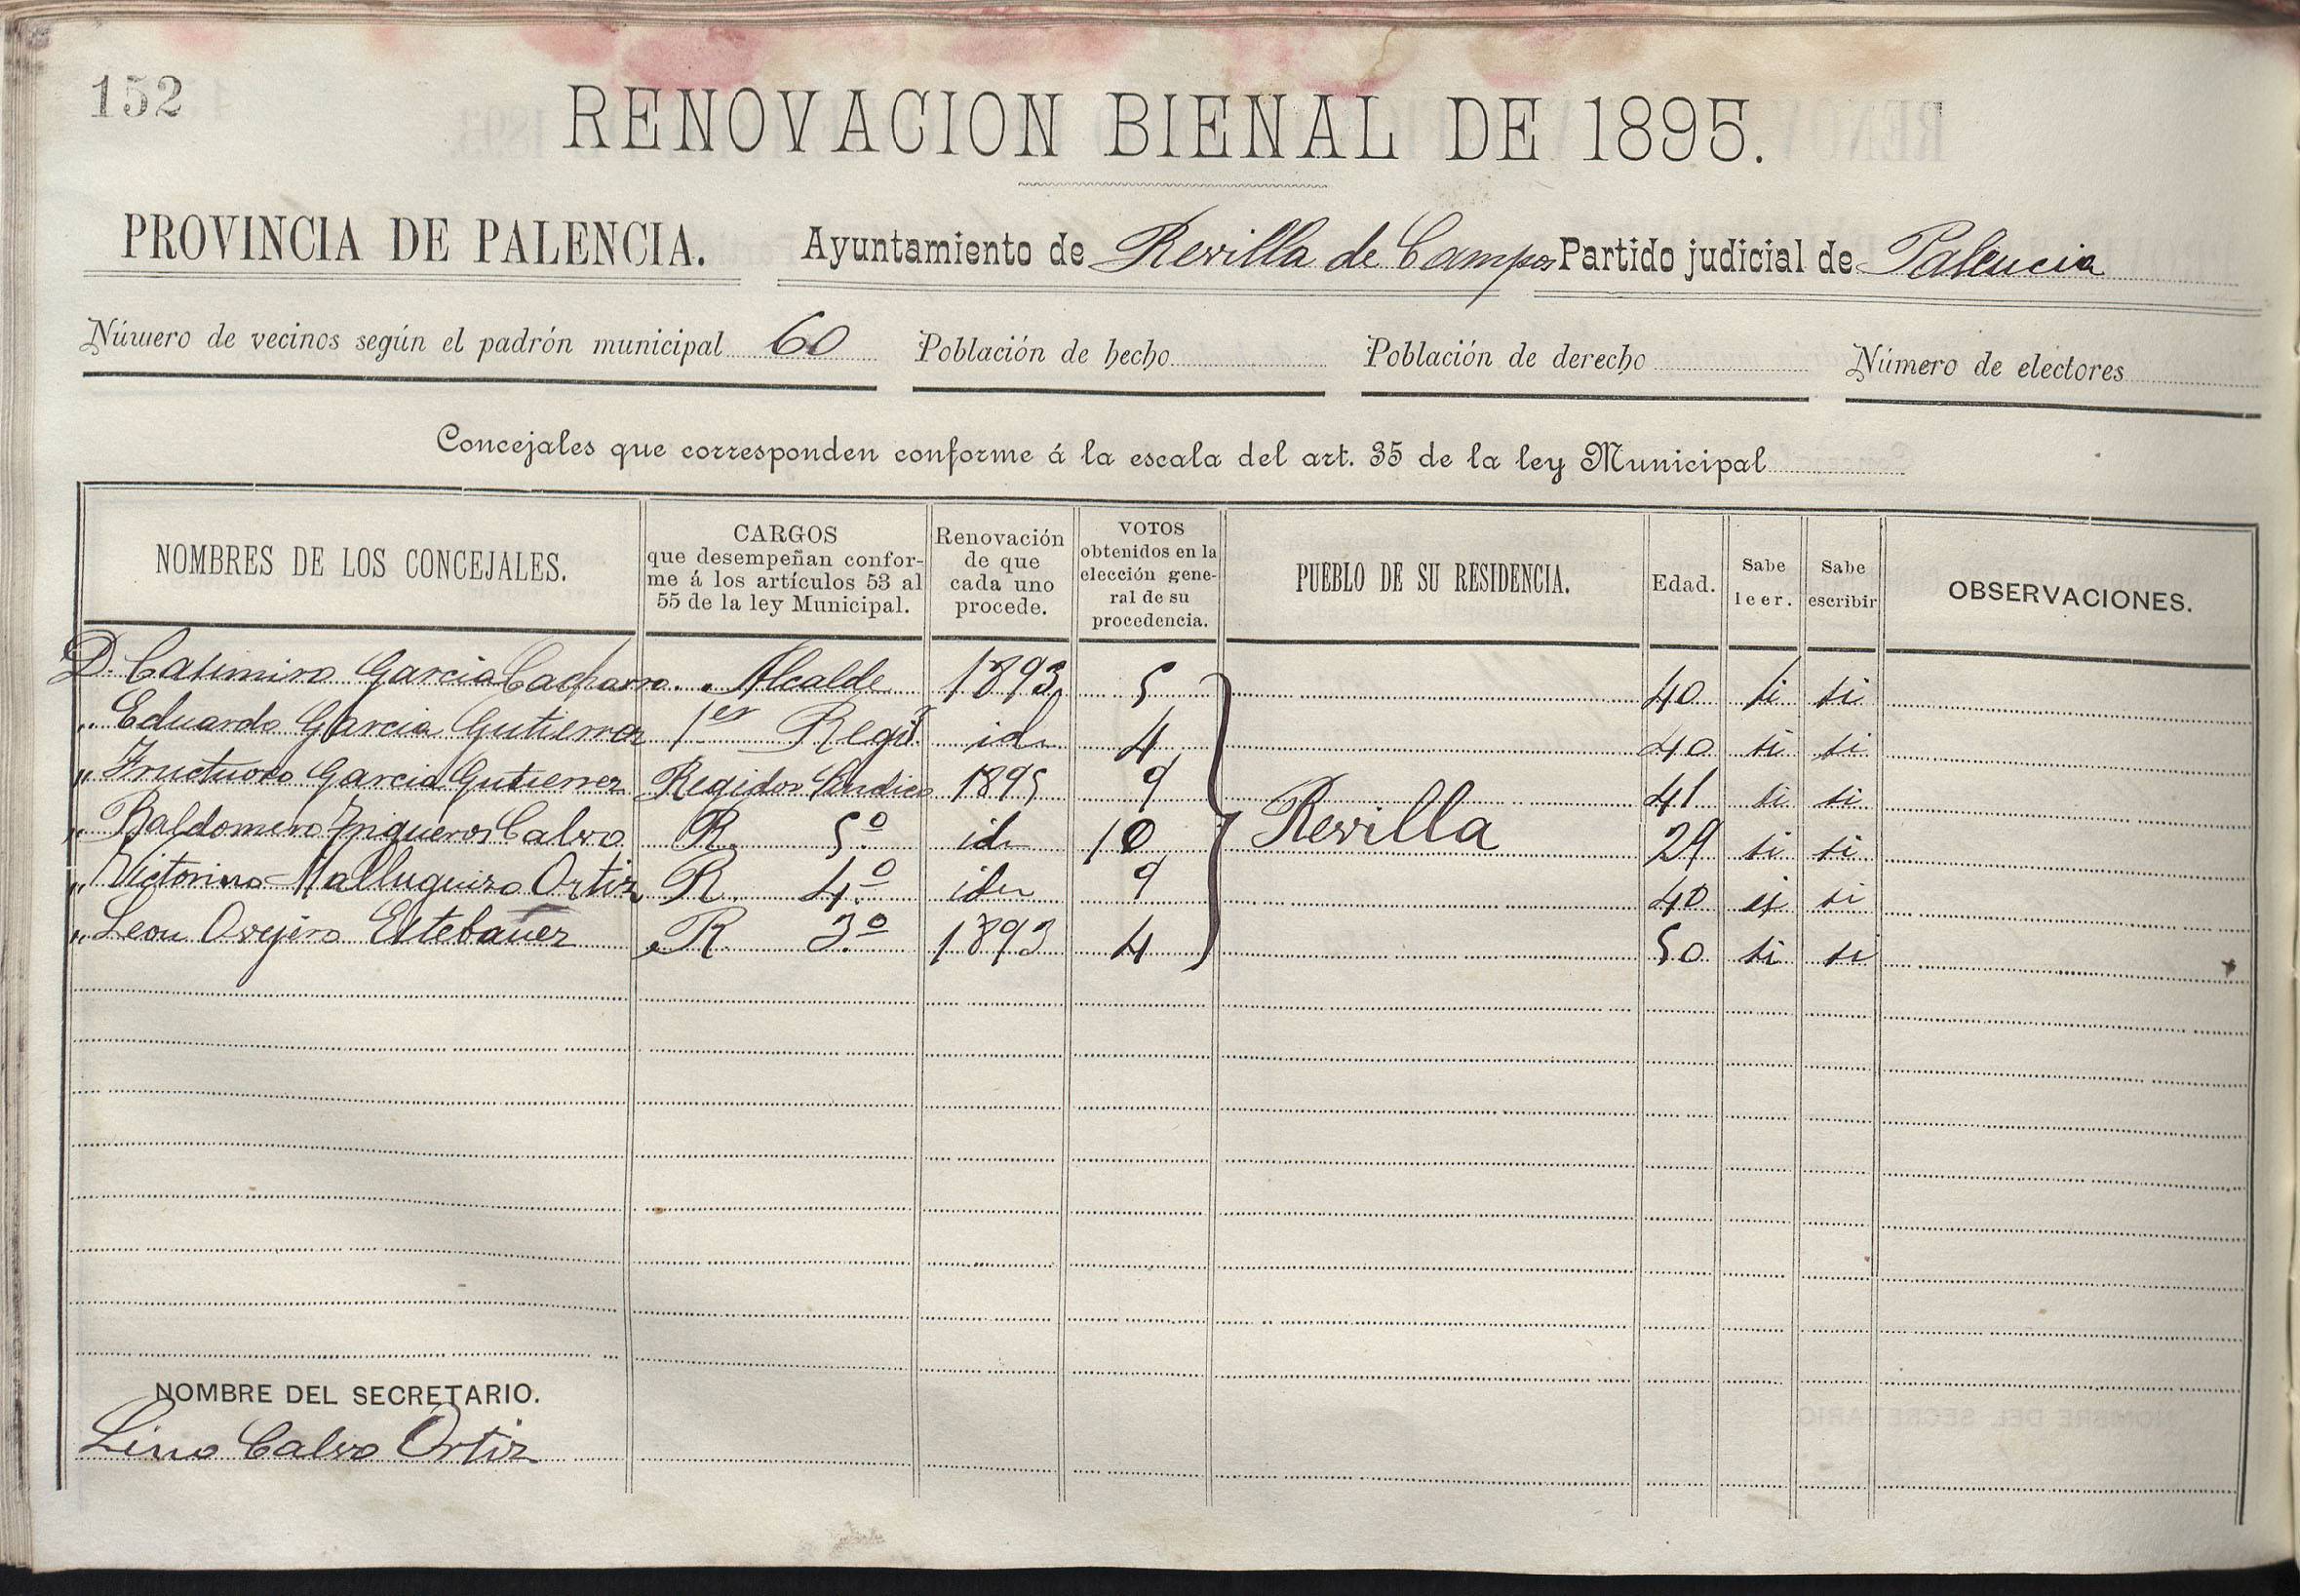 152
RENOVACION BIENAL DE 1895.
PROVINCIA DE PALENCIA. Ayuntamiento de Revilla de Campos Partido judicial de Palencia
Número de vecinos según el padrón municipal 60 Población de hecho Población de derecho Número de electores
Concejales que corresponden conforme á la escala del art. 35 de la ley Municipal
NOMBRES DE LOS CONCEJALES. CARGOS que desempeñan conforme á los artículos 53 al 55 de la ley Municipal. Renovación de que cada uno procede. VOTOS obtenidos en la elección general de su procedencia. PUEBLO DE SU RESIDENCIA. Edad. Sabe leer. Sabe escribir OBSERVACIONES.
D. Casimiro Garcia Cacharro Alcalde 1893 5 40 si si
„ Eduardo Garcia Gutierrez 1er Regr id 4 40 si si
„ Fructuoso Garcia Gutierrez Regidor Sindico 1895 9 41 si si
„ Baldomero Calvo R. 5º id 10 Revilla 29 si si
„ Victorino Ortiz R. 4º id 9 40 si si
„ Leon Ovejero Estebanez R 3º 1893 4 50 si si
NOMBRE DEL SECRETARIO.
Lino Calvo Ortiz